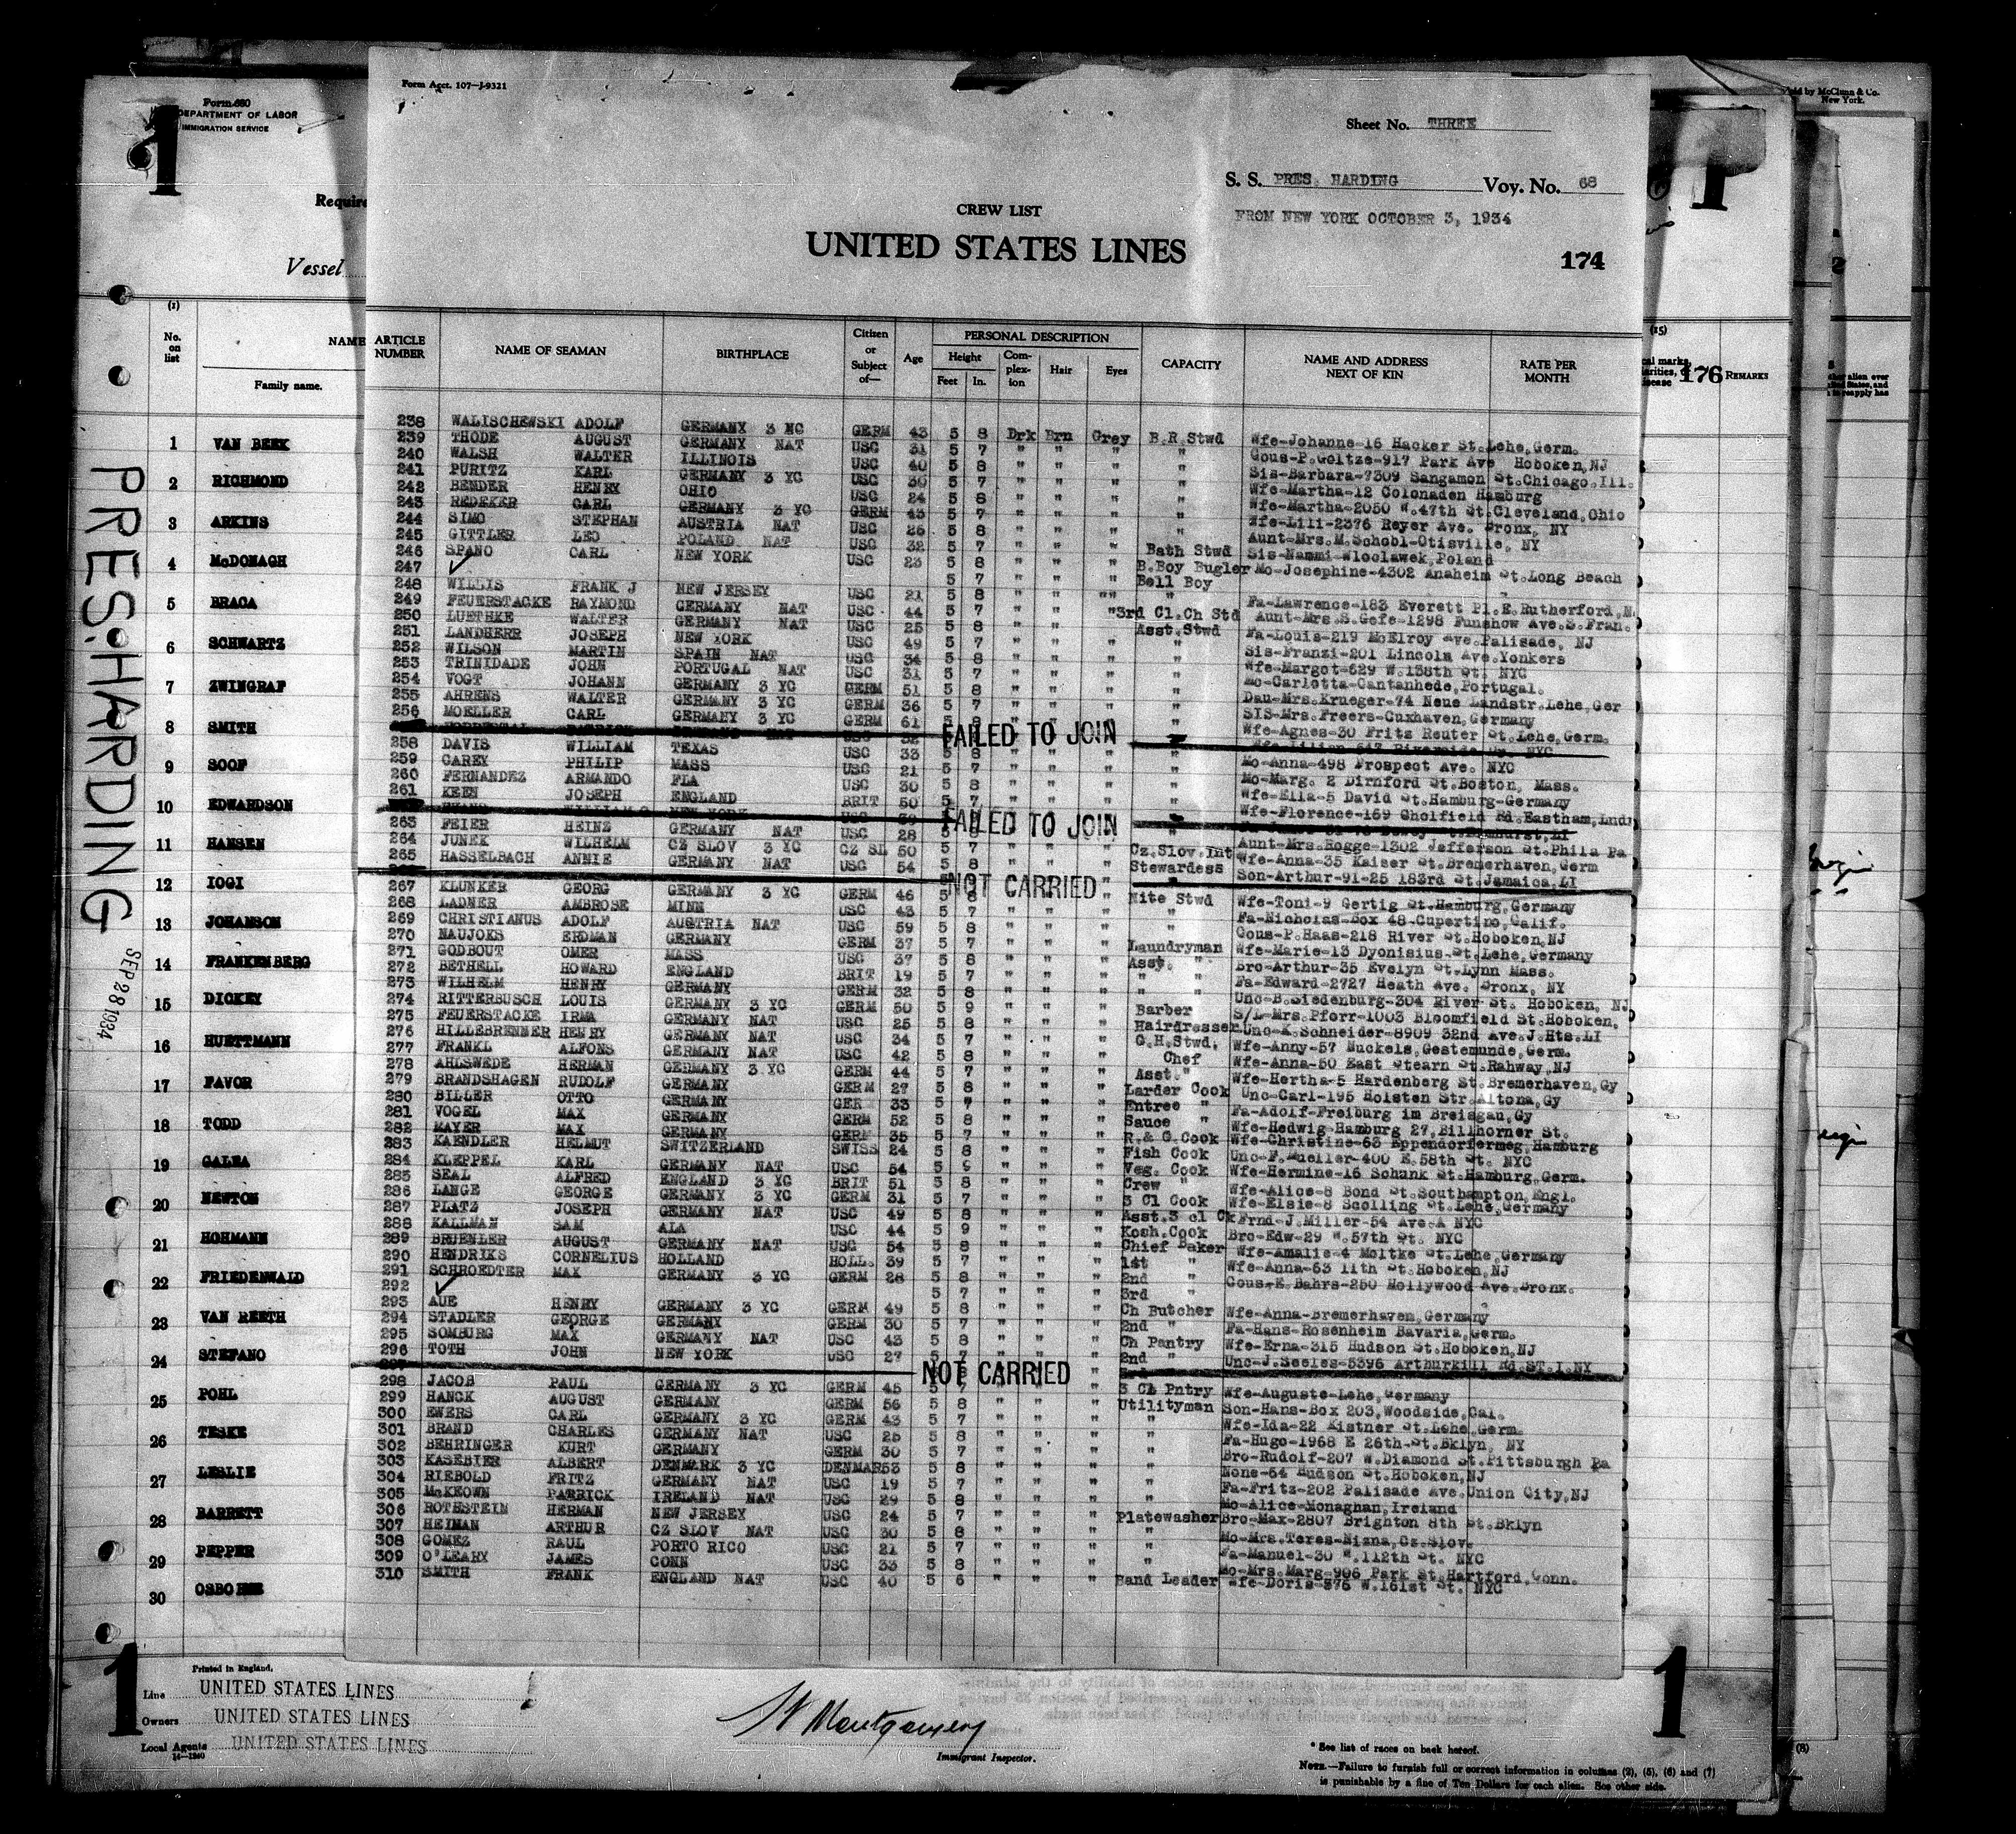 Form Acct. 107-J-9321
Form 680
DEPARTMENT OF LABOR
IMMIGRATION SERVICE
1
1
Sold by McClunn & Co.
New York.
Sheet No. THREE
S. S. PRES. HARDING Voy. No. 68
FROM NEW YORK OCTOBER 3, 1934
CREW LIST
UNITED STATES LINES
174
Vessel
(1)
No. on list
NAME
Family name.
ARTICLE NUMBER
NAME OF SEAMAN
BIRTHPLACE
Citizen or Subject of—
Age
PERSONAL DESCRIPTION
Height
Feet In.
Complexion
Hair
Eyes
CAPACITY
NAME AND ADDRESS NEXT OF KIN
RATE PER MONTH
(15)
176 REMARKS
PRES. HARDING
SEP 28 1934
1 VAN BEEK
2 RICHMOND
3 ARKINS
4 McDONAGH
5 BRAGA
6 SCHWARTZ
7 ZWINGRAF
8 SMITH
9 SOOP
10 EDWARDSON
11 HANSEN
12 IOGI
13 JOHANSON
14 FRANKENBERG
15 DICKEY
16 HUETTMANN
17 FAVOR
18 TODD
19 GALEA
20 NEWTON
21 HOHMANN
22 FRIEDENWALD
23 VAN REETH
24 STEFANO
25 POHL
26 TESKE
27 LESLIE
28 BARRETT
29 PEPPER
30 OSBORNE
238 WALISCHEWSKI ADOLF GERMANY 3 NC GERM 43 5 8 Drk Brn Grey B.R.Stwd Wfe-Johanne-16 Hacker St.Lehe,Germ.
239 THODE AUGUST GERMANY NAT USC 31 5 7 " " " " Cous-P.Goltze-917 Park Ave Hoboken,NJ
240 WALSH WALTER ILLINOIS USC 40 5 8 " " " " Sis-Barbara-7309 Sangamon St.Chicago.Ill.
241 PURITZ KARL GERMANY 3 YC USC 30 5 7 " " " " Wfe-Martha-12 Colonaden Hamburg
242 BENDER HENRY OHIO USC 24 5 8 " " " " Wfe-Martha-2050 W.47th St.Cleveland,Ohio
243 REDEKER CARL GERMANY 3 YC GERM 43 5 7 " " " " Wfe-Lili-2376 Reyer Ave. Bronx, NY
244 SIMO STEPHAN AUSTRIA NAT USC 26 5 8 " " " " Aunt-Mrs.M.Schobl-Otisville, NY
245 GITTLER LEO POLAND NAT USC 32 5 7 " " " Bath Stwd Sis-Nammi-Wloclawek,Poland
246 SPANO CARL NEW YORK USC 23 5 8 " " " B.Boy Bugler Mo-Josephine-4302 Anaheim St.Long Beach
247 5 7 " " " Bell Boy
248 WILLIS FRANK J NEW JERSEY USC 21 5 8 " " " " Fa-Lawrence-183 Everett Pl.E.Rutherford,N.
249 FEUERSTACKE RAYMOND GERMANY NAT USC 44 5 7 " " " 3rd Cl.Ch Std Aunt-Mrs.S.Gefe-1298 Funshow Ave.S.Fran.
250 LUETHKE WALTER GERMANY NAT USC 25 5 8 " " " Asst.Stwd Fa-Louis-219 McElroy Ave.Palisade, NJ
251 LANDHERR JOSEPH NEW YORK USC 49 5 7 " " " " Sis-Franzi-201 Lincoln Ave.Yonkers
252 WILSON MARTIN SPAIN NAT USC 34 5 8 " " " " Wfe-Margot-629 W.138th St. NYC
253 TRINIDADE JOHN PORTUGAL NAT USC 31 5 7 " " " " Mo-Carlotta-Cantanhede,Portugal.
254 VOGT JOHANN GERMANY 3 YC GERM 51 5 8 " " " " Dau-Mrs.Krueger-74 Neue Landstr.Lehe,Ger
255 AHRENS WALTER GERMANY 3 YC GERM 36 5 7 " " " " SIS-Mrs.Freers-Cuxhaven,Germany
256 MOELLER CARL GERMANY 3 YC GERM 61 5 8 " " " " Wfe-Agnes-30 Fritz Reuter St.Lehe,Germ.
FAILED TO JOIN
258 DAVIS WILLIAM TEXAS USC 33 5 8 " " " " Mo-Anna-498 Prospect Ave. NYC
259 CAREY PHILIP MASS USC 21 5 7 " " " " Mo-Marg. 2 Dirnford St.Boston, Mass.
260 FERNANDEZ ARMANDO FLA USC 30 5 8 " " " " Wfe-Ella-5 David St.Hamburg-Germany
261 KEEN JOSEPH ENGLAND BRIT 50 5 7 " " " " Wfe-Florence-169 Cholfield Rd.Eastham,Lnd;
FAILED TO JOIN
263 FEIER HEINZ GERMANY NAT USC 28 5 8 " " " " Aunt-Mrs.Rogge-1302 Jefferson St.Phila Pa
264 JUNEK WILHELM CZ SLOV 3 YC CZ SL 50 5 7 " " " Cz.Slov.Int Wfe-Anna-35 Kaiser St.Bremerhaven,Germ
265 HASSELBACH ANNIE GERMANY NAT USC 54 5 8 " " " Stewardess Son-Arthur-91-25 183rd St.Jamaica,LI
NOT CARRIED
267 KLUNKER GEORG GERMANY 3 YC GERM 46 5 8 " " " Nite Stwd Wfe-Toni-9 Gertig St.Hamburg,Germany
268 LADNER AMBROSE MINN USC 43 5 7 " " " " Fa-Nicholas-Box 48-Cupertino,Calif.
269 CHRISTIANUS ADOLF AUSTRIA NAT USC 59 5 8 " " " " Cous-P.Haas-218 River St.Hoboken,NJ
270 NAUJOKS ERDMAN GERMANY GERM 37 5 7 " " " Laundryman Wfe-Marie-13 Dyonisius-St.Lehe,Germany
271 GODBOUT OMER MASS USC 37 5 8 " " " Asst. " Bro-Arthur-35 Evelyn St.Lynn Mass.
272 BETHELL HOWARD ENGLAND BRIT 19 5 7 " " " " " Fa-Edward-2727 Heath Ave. Bronx, NY
273 WILHELM HENRY GERMANY GERM 32 5 8 " " " " " Unc-B.Siedenburg-304 River St. Hoboken, NJ
274 RITTERBUSCH LOUIS GERMANY 3 YC GERM 50 5 9 " " " Barber S/L-Mrs.Pforr-1003 Bloomfield St.Hoboken,
275 FEUERSTACKE IRMA GERMANY NAT USC 25 5 8 " " " Hairdresser Unc-K.Schneider-8909 32nd Ave.J.Hts.LI
276 HILLEBRENNER HENRY GERMANY NAT USC 34 5 7 " " " G.H.Stwd. Wfe-Anny-57 Nuckels,Gestemunde,Germ.
277 FRANKL ALFONS GERMANY NAT USC 42 5 8 " " " Chef Wfe-Anna-50 East Stearn St.Rahway,NJ
278 AHLSWEDE HERMAN GERMANY 3 YC GERM 44 5 7 " " " Asst." Wfe-Hertha-5 Hardenberg St.Bremerhaven,Gy
279 BRANDSHAGEN RUDOLF GERMANY GERM 27 5 8 " " " Larder Cook Unc-Carl-195 Holsten Str.Altona,Gy
280 BILLER OTTO GERMANY GER 33 5 7 " " " Entree " Fa-Adolf-Freiburg im Breisgau,Gy
281 VOGEL MAX GERMANY GERM 52 5 8 " " " Sauce " Wfe-Hedwig-Hamburg 27,Billhorner St.
282 MAYER MAX GERMANY GERM 35 5 7 " " " R.& G.Cook Wfe-Christine-63 Eppendorfermeg,Hamburg
283 KAENDLER HELMUT SWITZERLAND SWISS 24 5 8 " " " Fish Cook Unc-F.Mueller-400 E.58th St. NYC
284 KLEPPEL KARL GERMANY NAT USC 54 5 6 " " " Veg. Cook Wfe-Hermine-16 Schank St.Hamburg,Germ.
285 SEAL ALFRED ENGLAND 3 YC BRIT 51 5 8 " " " Crew " Wfe-Alice-8 Bond St.Southampton,Engl.
286 LANGE GEORGE GERMANY 3 YC GERM 31 5 7 " " " 3 Cl Cook Wfe-Elsie-8 Scolling St.Lehe,Germany
287 PLATZ JOSEPH GERMANY NAT USC 49 5 8 " " " Asst.3 cl Ck Frnd-J.Miller-54 Ave.A NYC
288 KALLMAN SAM ALA USC 44 5 9 " " " Kosh.Cook Bro-Edw-29 W.57th St. NYC
289 BRUENLER AUGUST GERMANY NAT USC 54 5 8 " " " Chief Baker Wfe-Amalie-4 Moltke St.Lehe,Germany
290 HENDRIKS CORNELIUS HOLLAND HOLL. 39 5 7 " " " 1st " Wfe-Anna-63 11th St.Hoboken,NJ
291 SCHROEDTER MAX GERMANY 3 YC GERM 28 5 8 " " " 2nd " Cous-E.Bahrs-250 Hollywood Ave.Bronx.
292 5 7 " " " 3rd "
293 AUE HENRY GERMANY 3 YC GERM 49 5 8 " " " Ch Butcher Wfe-Anna-Bremerhaven,Germany
294 STADLER GEORGE GERMANY GERM 30 5 7 " " " 2nd " Fa-Hans-Rosenheim Bavaria,Germ.
295 SOMBURG MAX GERMANY NAT USC 43 5 8 " " " Ch Pantry Wfe-Erna-315 Hudson St.Hoboken,NJ
296 TOTH JOHN NEW YORK USC 27 5 7 " " " 2nd " Unc-J.Seeles-5396 Arthurkill Rd.ST.I.NY
NOT CARRIED
298 JACOB PAUL GERMANY 3 YC GERM 45 5 7 " " " 3 Cl Pntry Wfe-Auguste-Lehe,Germany
299 HANCK AUGUST GERMANY GERM 56 5 8 " " " Utilityman Son-Hans-Box 203,Woodside,Cal.
300 EWERS CARL GERMANY 3 YC GERM 43 5 7 " " " " Wfe-Ida-22 Kistner St.Lehe,Germ.
301 BRAND CHARLES GERMANY NAT USC 25 5 8 " " " " Fa-Hugo-1968 E 26th-St.Bklyn, NY
302 BEHRINGER KURT GERMANY GERM 30 5 7 " " " " Bro-Rudolf-207 W.Diamond St.Pittsburgh Pa
303 KASEBIER ALBERT DENMARK 3 YC DENMAR 53 5 8 " " " " None-64 Hudson St.Hoboken,NJ
304 RIEBOLD FRITZ GERMANY NAT USC 19 5 7 " " " " Fa-Fritz-202 Palisade Ave.Union City,NJ
305 McKEOWN PATRICK IRELAND NAT USC 29 5 8 " " " " Mo-Alice-Monaghan,Ireland
306 ROTHSTEIN HERMAN NEW JERSEY USC 24 5 7 " " " Platewasher Bro-Max-2807 Brighton 8th St.Bklyn
307 HEIMAN ARTHUR CZ SLOV NAT USC 30 5 8 " " " " Mo-Mrs.Teres-Nizna,Cz.Slov.
308 GOMEZ RAUL PORTO RICO USC 21 5 7 " " " " Fa-Manuel-30 W.112th St. NYC
309 O'LEARY JAMES CONN USC 33 5 8 " " " " Mo-Mrs.Marg-906 Park St.Hartford,Conn.
310 SMITH FRANK ENGLAND NAT USC 40 5 6 " " " Band Leader Wfe-Doris-576 W.161st St. NYC
1
1
Printed in England.
Line UNITED STATES LINES
Owners UNITED STATES LINES
Local Agents UNITED STATES LINES
14-1240
W Montgomery
Immigrant Inspector.
* See list of races on back hereof.
NOTE.—Failure to furnish full or correct information in columns (2), (5), (6) and (7)
is punishable by a fine of Ten Dollars for each alien. See other side.
(8)